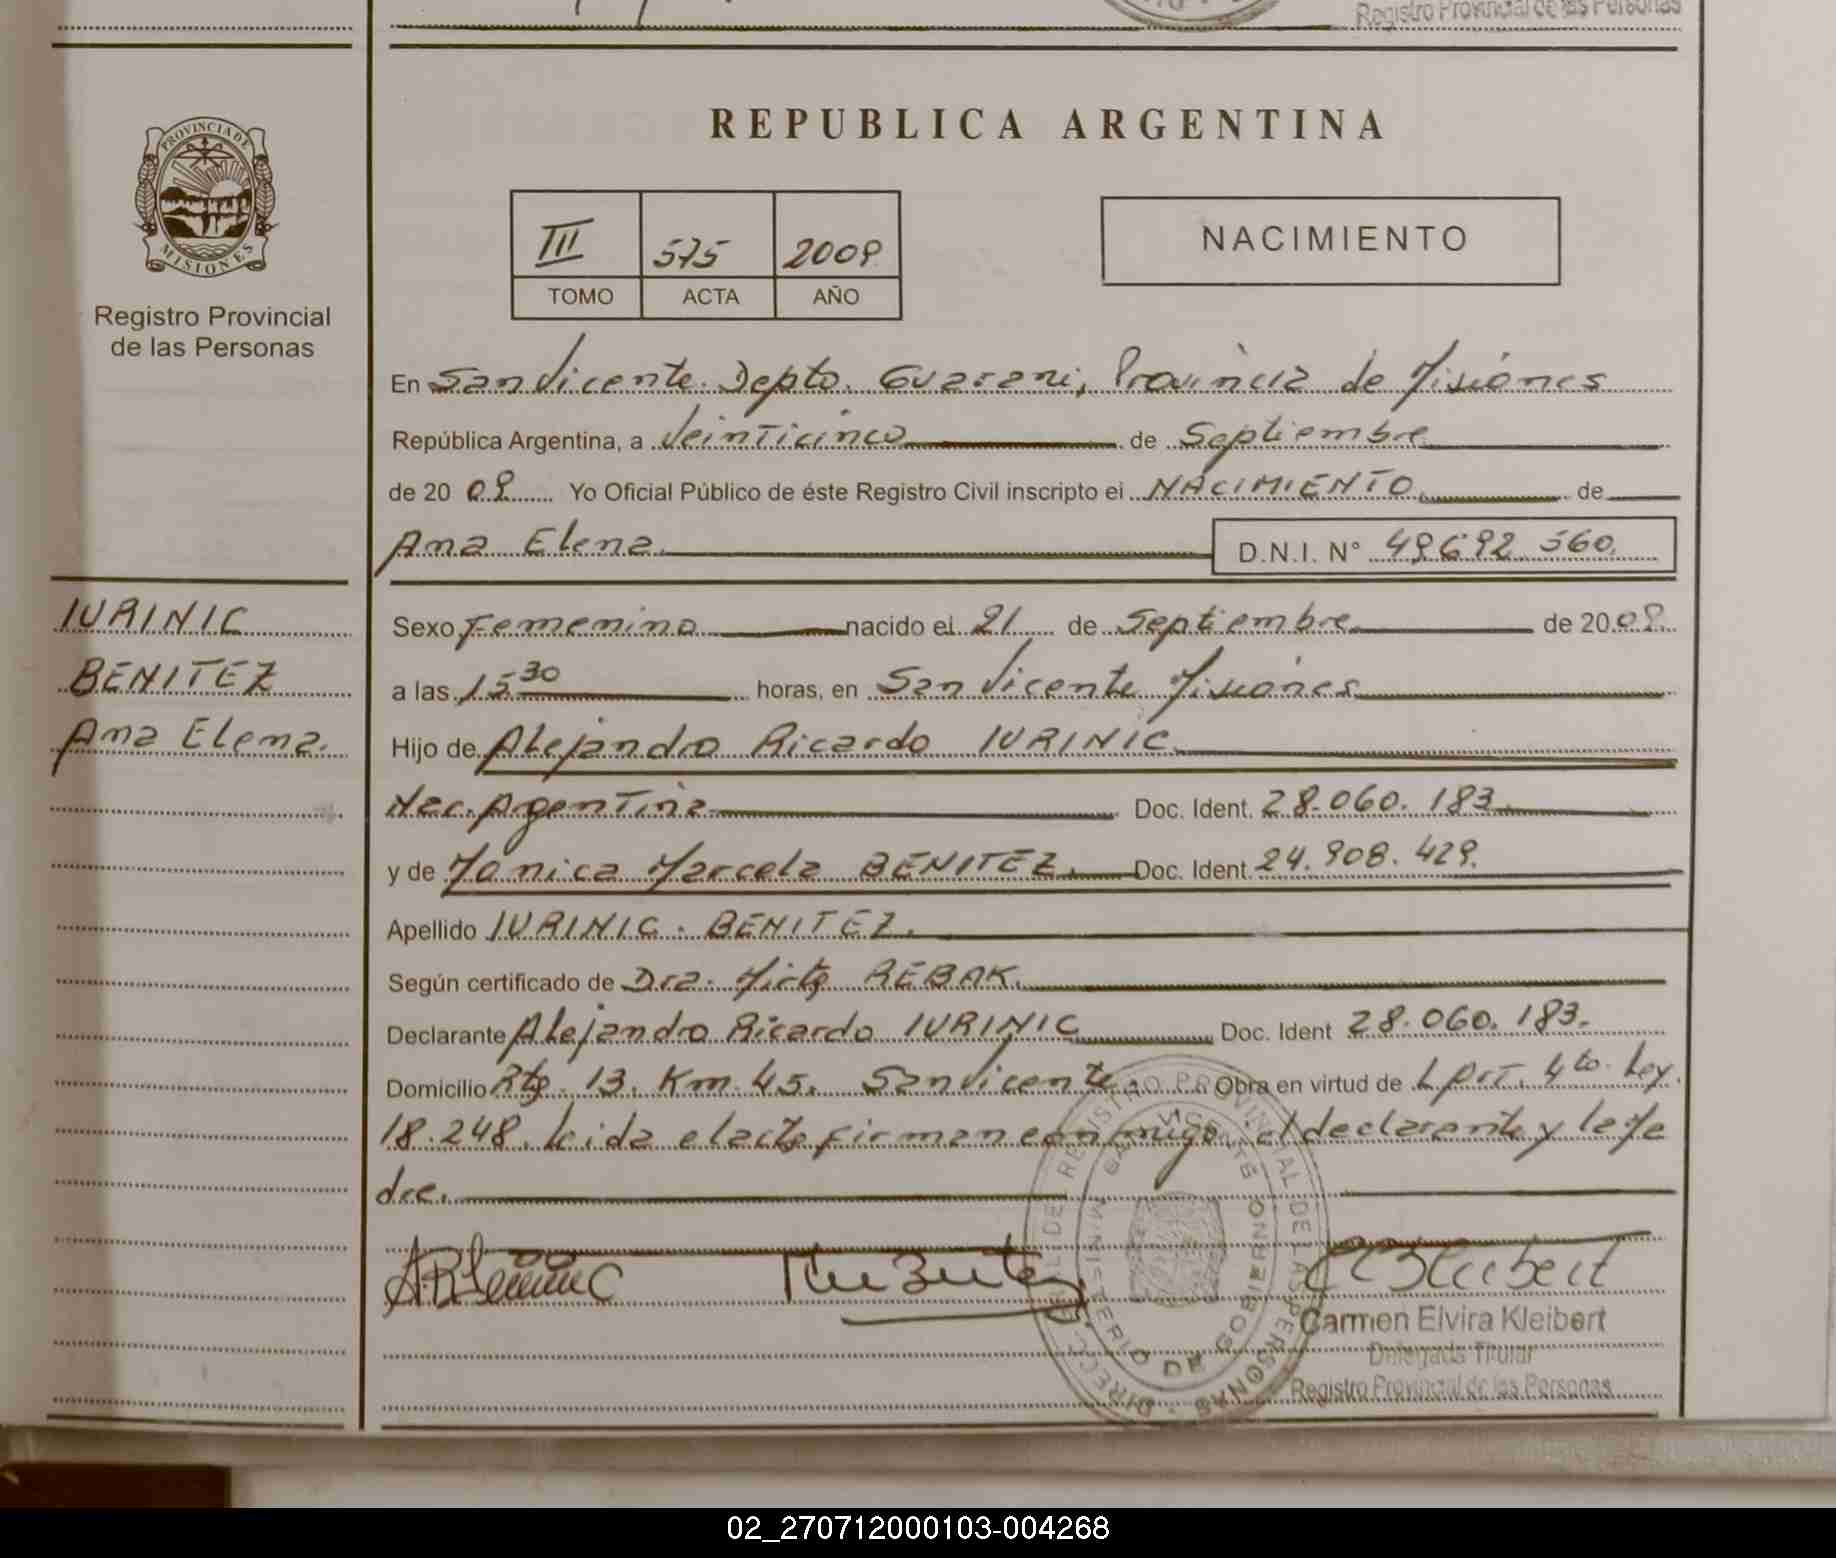 Registro Provincial de las Personas
REPUBLICA ARGENTINA
PROVINCIA DE
MISIONES
Registro Provincial
de las Personas
III 575 2009
TOMO ACTA AÑO
NACIMIENTO
En San Vicente. Depto. Guarani, Provincia de Misiones
República Argentina, a Veinticinco de Septiembre
de 20 09 Yo Oficial Público de éste Registro Civil inscripto el NACIMIENTO de
Ana Elena. D.N.I. N° 49692.560.
IURINIC
BENITEZ
Ana Elena.
Sexo Femenino nacido el 21 de Septiembre de 20 09.
a las 15 30 horas, en San Vicente Misiones
Hijo de Alejandro Ricardo IURINIC
Nac. Argentina Doc. Ident. 28.060.183
y de Monica Marcela BENITEZ. Doc. Ident. 24.908.429.
Apellido IURINIC. BENITEZ.
Según certificado de Dra. Mirta REBAK.
Declarante Alejandro Ricardo IURINIC Doc. Ident 28.060.183.
Domicilio Rta. 13. Km. 45. San Vicente. Obra en virtud de L Art. 4to. Ley
18.248. Leida el acta firman conmigo el declarante y la
dre.
Carmen Elvira Kleibert
Delegada Titular
Registro Provincial de las Personas
02_270712000103-004268